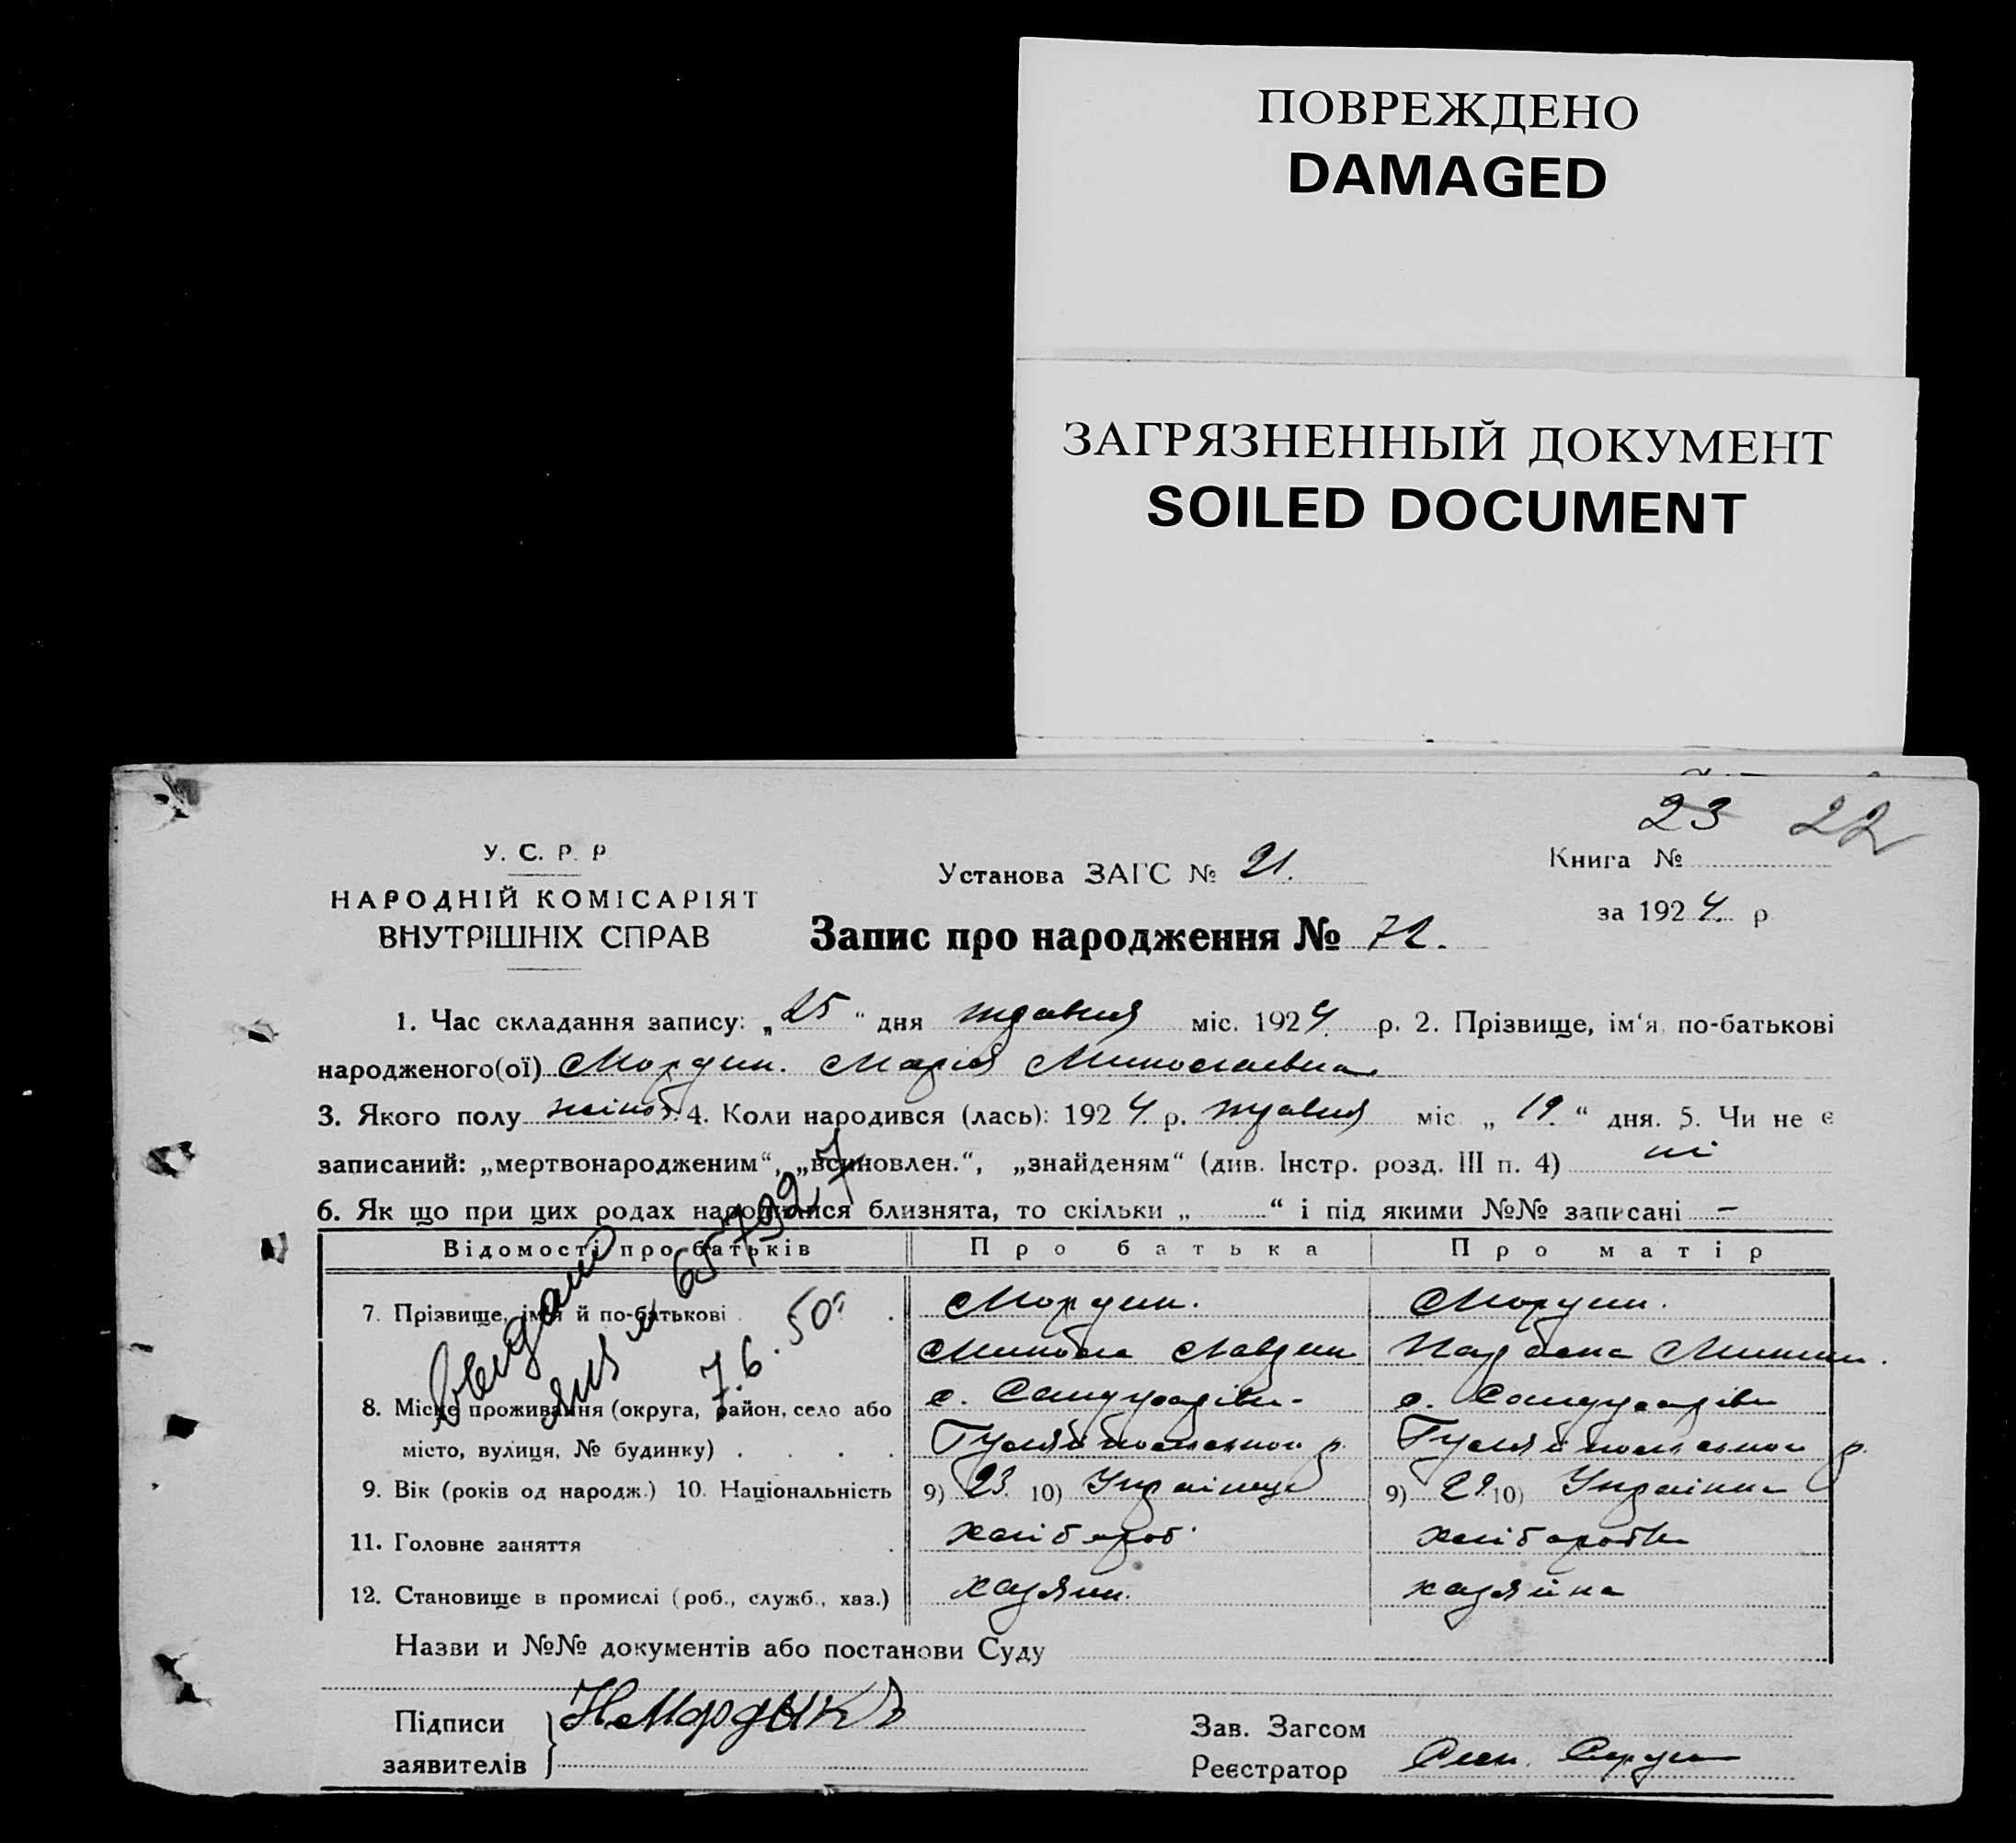 ПОВРЕЖДЕНО
DAMAGED
ЗАГРЯЗНЕННЫЙ ДОКУМЕНТ
SOILED DOCUMENT
23 22
У. С. Р. Р.
НАРОДНІЙ КОМІСАРІЯТ
ВНУТРІШНІХ СПРАВ
Установа ЗАГС № 21.
Книга №
за 1924. р
Запис про народження № 72.
1. Час складання запису: „25“ дня травня міс. 1924 р. 2. Прізвище, ім‘я по-батькові
народженого(ої) Мордик. Марія Миколаевна
3. Якого полу жіноб. 4. Коли народився (лась): 1924 р. травня міс „19.“ дня. 5. Чи не є
записаний: „мертвонародженим“, „всиновлен.“, „знайденям“ (див. Інстр. розд. III п. 4) ні
6. Як що при цих родах народилися близнята, то скільки „ “ і під якими №№ записані —
Відомості про батьків Про батька Про матір
7. Прізвище, ім‘я й по-батькові Мордик. Мордик.
Микола
8. Місце проживання (округа, район, село або с. с.
місто, вулиця, № будинку) Гуляйпольського р. Гуляйпольського р.
9. Вік (років од народж.) 10. Національність 9) 23. 10) Українець 9) 10) Українка
11. Головне заняття хлібороб хліборобка
12. Становище в промислі (роб., служб., хаз.) хазяин. хазяйка
7.6.50
Назви и №№ документів або постанови Суду
Підписи НМордыкъ
заявителів
Зав. Загсом
Реєстратор